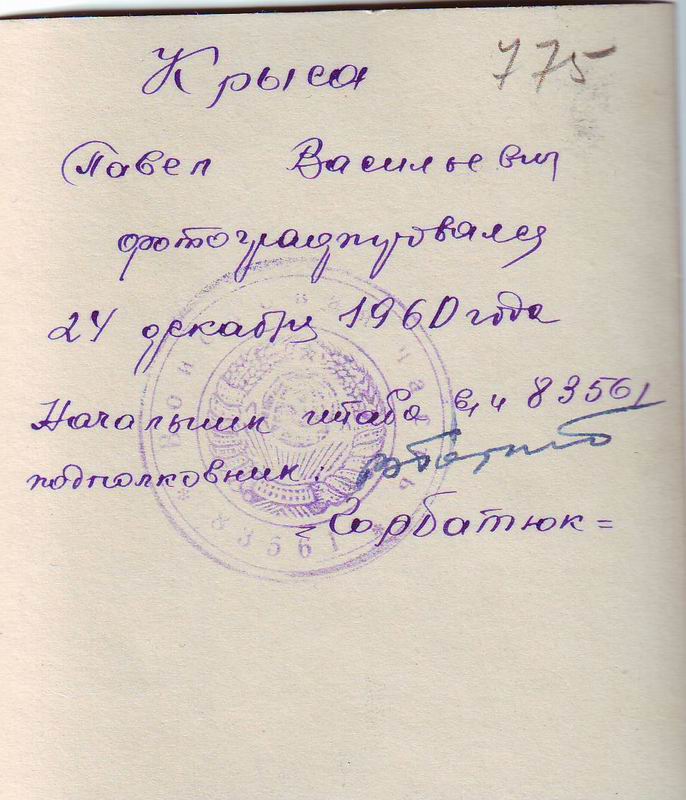 Крыса 775
Павел Васильевич
фотографировался
24 декабря 1960 года
Начальник штаба в/ч 83561
подполковник:
=Горбатюк=
Войсковая часть
* 83561 *